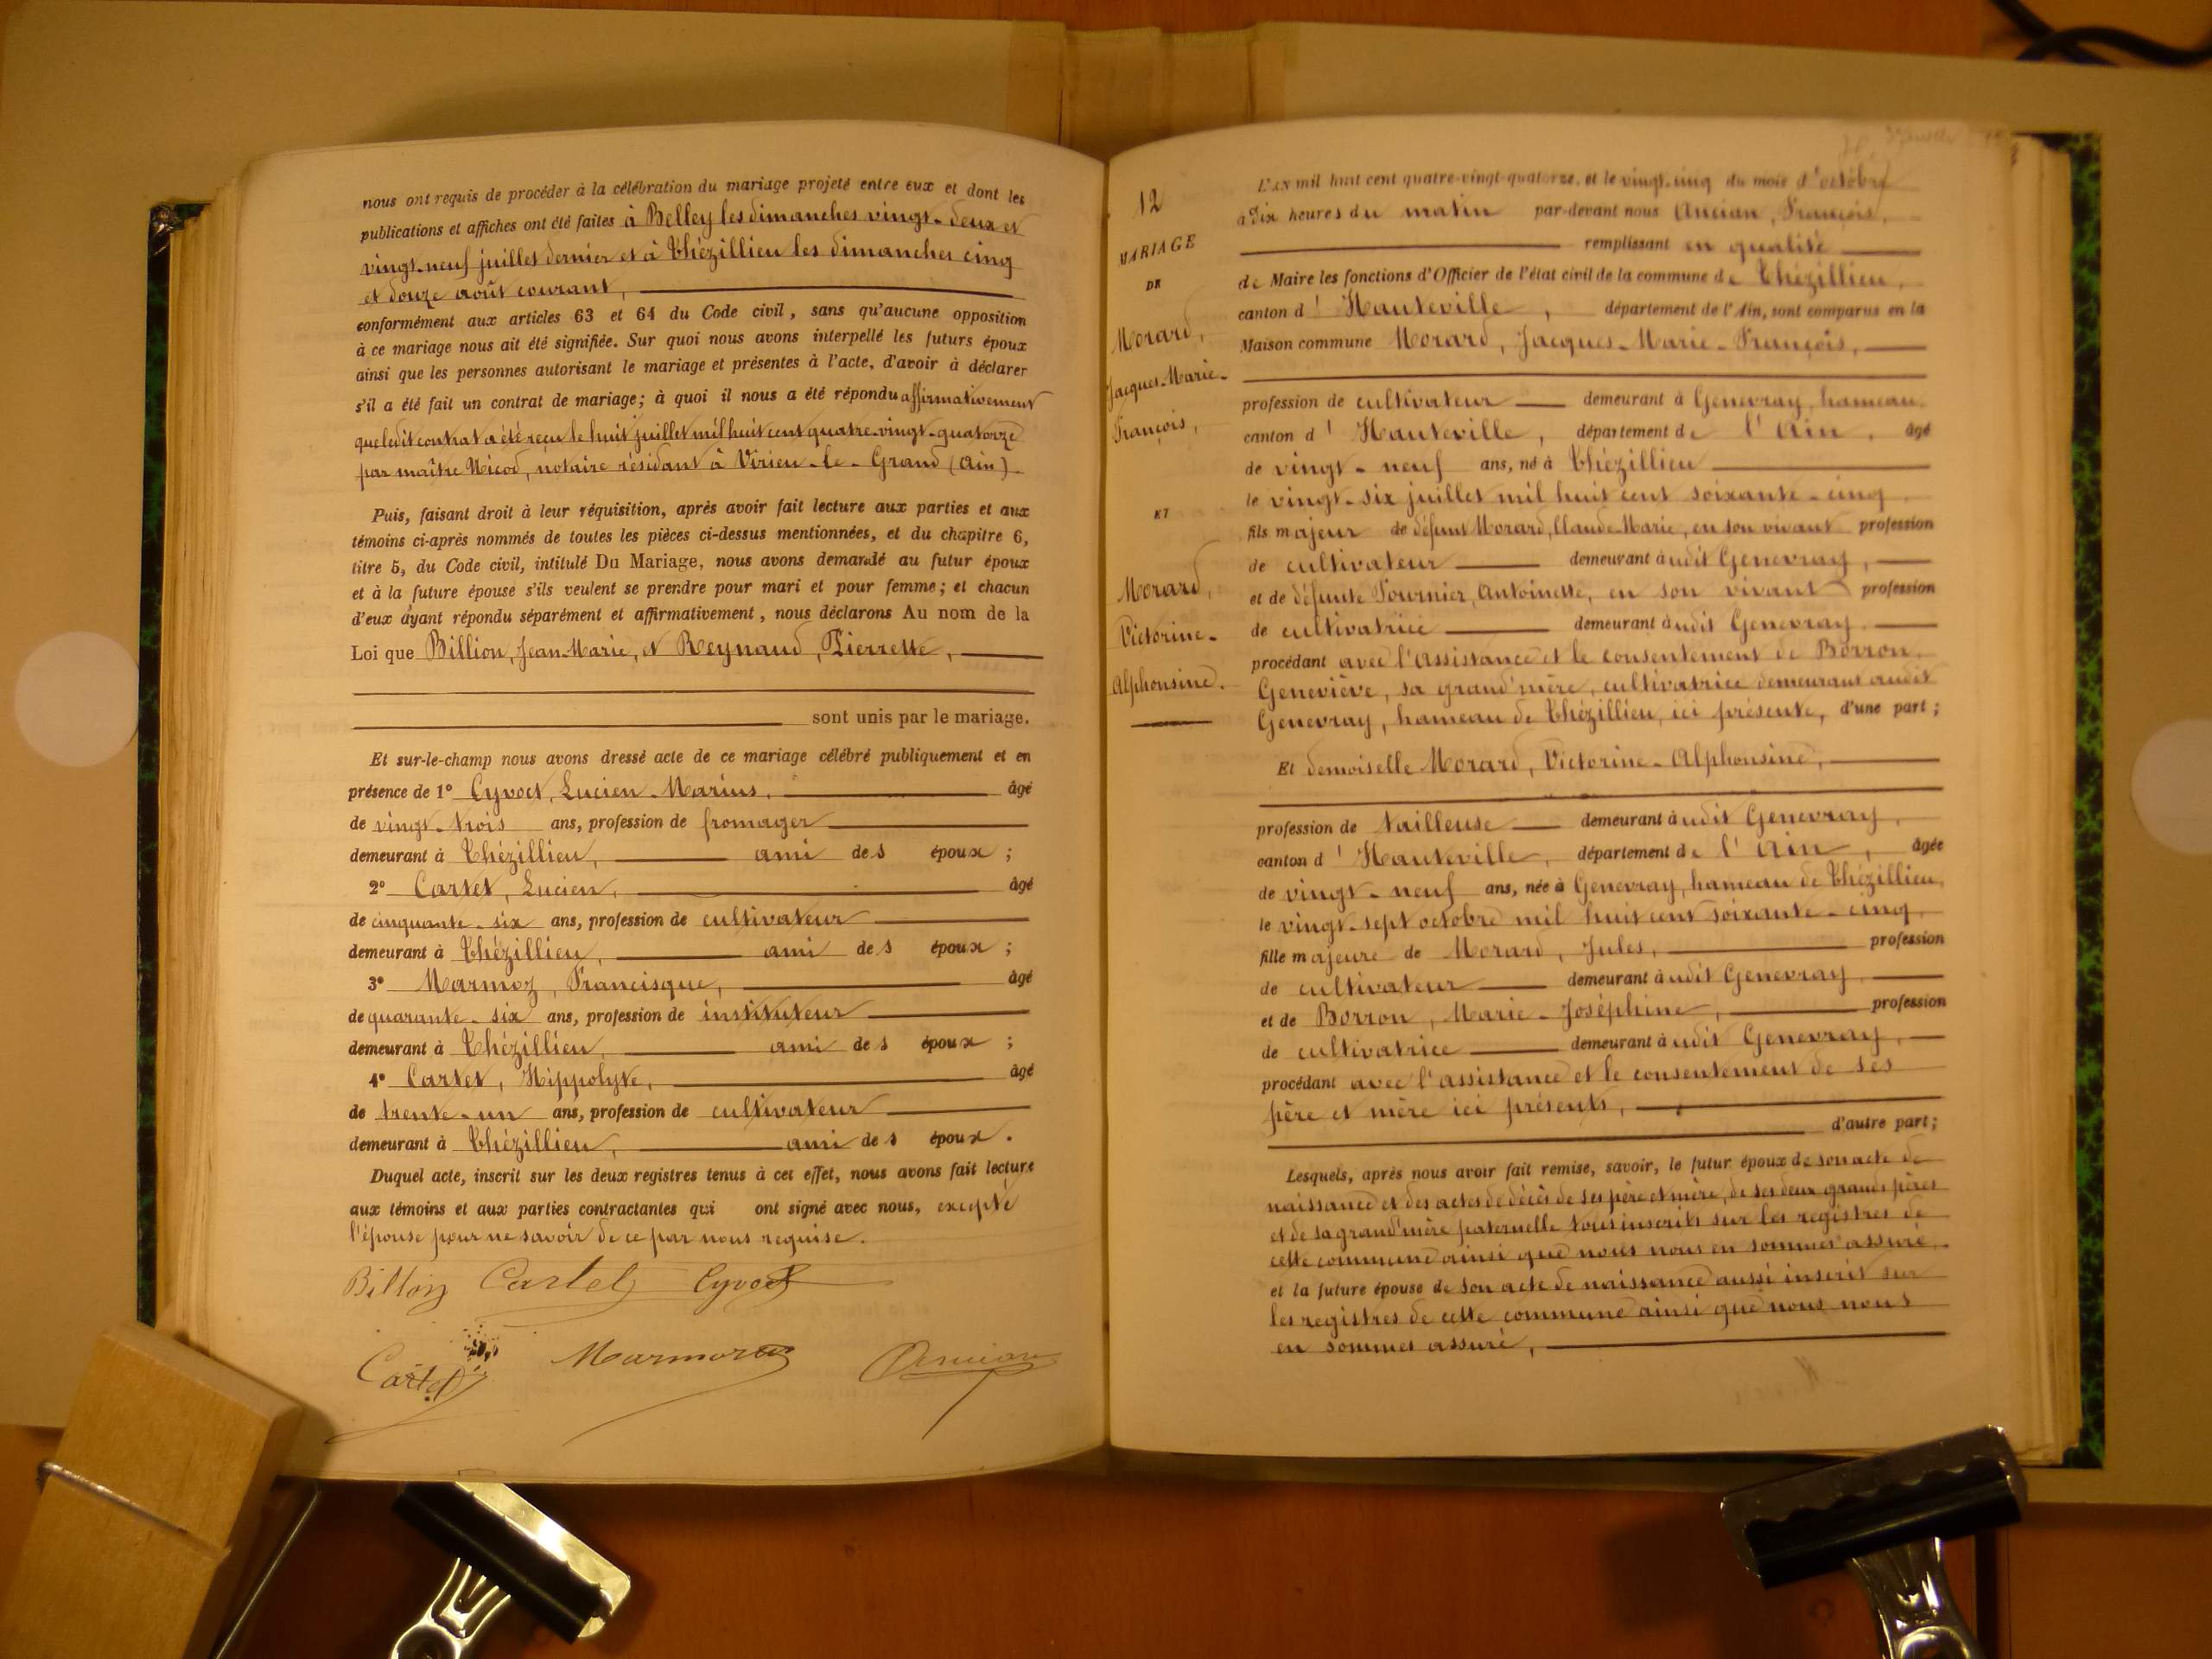 nous ont requis de procéder à la célébration du mariage projeté entre eux et dont les
publications et affiches ont été faites à Belley les dimanches vingt-deux et
vingt-neuf juillet dernier et à Thézillieu les dimanches cinq
et douze août courant,
conformément aux articles 63 et 64 du Code civil, sans qu'aucune opposition
à ce mariage nous ait été signifiée. Sur quoi nous avons interpellé les futurs époux
ainsi que les personnes autorisant le mariage et présentes à l'acte, d'avoir à déclarer
s'il a été fait un contrat de mariage; à quoi il nous a été répondu affirmativement
que ledit contrat a été reçu le huit juillet mil huit cent quatre-vingt-quatorze
par maître Nicod, notaire résidant à Virieu-le-Grand (Ain)
Puis, faisant droit à leur réquisition, après avoir fait lecture aux parties et aux
témoins ci-après nommés de toutes les pièces ci-dessus mentionnées, et du chapitre 6,
titre 5, du Code civil, intitulé Du Mariage, nous avons demandé au futur époux
et à la future épouse s'ils veulent se prendre pour mari et pour femme; et chacun
d'eux ayant répondu séparément et affirmativement, nous déclarons Au nom de la
Loi que Billion, Jean-Marie, et Reynaud, Pierrette,
sont unis par le mariage.
Et sur-le-champ nous avons dressé acte de ce mariage célébré publiquement et en
présence de 1° Cyvoct, Lucien-Marius, âgé
de vingt-trois ans, profession de fromager
demeurant à Thézillieu, ami des époux;
2° Cartet, Lucien, âgé
de cinquante-six ans, profession de cultivateur
demeurant à Thézillieu, ami des époux;
3° Marmoz, Francisque, âgé
de quarante-six ans, profession de instituteur
demeurant à Thézillieu, ami des époux;
4° Cartet, Hippolyte, âgé
de trente-un ans, profession de cultivateur
demeurant à Thézillieu, ami des époux.
Duquel acte, inscrit sur les deux registres tenus à cet effet, nous avons fait lecture
aux témoins et aux parties contractantes qui ont signé avec nous, excepté
l'épouse pour ne savoir de ce par nous requise.
Billion Cartet Cyvoct
Cartet Marmoz Ancian
12
MARIAGE
DE
Morard,
Jacques-Marie-
François,
ET
Morard,
Victorine-
Alphonsine.
L'AN mil huit cent quatre-vingt-quatorze, et le vingt-cinq du mois d'octobre
à dix heures du matin par-devant nous Ancian, François,
remplissant en qualité
de Maire les fonctions d'Officier de l'état civil de la commune de Thézillieu,
canton d'Hauteville, département de l'Ain, sont comparus en la
Maison commune Morard, Jacques-Marie-François,
profession de cultivateur demeurant à Genevray, hameau,
canton d'Hauteville, département de l'Ain, âgé
de vingt-neuf ans, né à Thézillieu
le vingt-six juillet mil huit cent soixante-cinq,
fils majeur de défunt Morard, Claude-Marie, en son vivant profession
de cultivateur demeurant audit Genevray,
et de défunte Fournier, Antoinette, en son vivant profession
de cultivatrice demeurant audit Genevray
procédant avec l'assistance et le consentement de Borron,
Geneviève, sa grand'mère, cultivatrice demeurant audit
Genevray, hameau de Thézillieu, ici présente, d'une part;
Et demoiselle Morard, Victorine-Alphonsine,
profession de tailleuse demeurant audit Genevray,
canton d'Hauteville, département de l'Ain, âgée
de vingt-neuf ans, née à Genevray, hameau de Thézillieu,
le vingt-sept octobre mil huit cent soixante-cinq,
fille majeure de Morard, Jules, profession
de cultivateur demeurant audit Genevray,
et de Borron, Marie-Joséphine, profession
de cultivatrice demeurant audit Genevray,
procédant avec l'assistance et le consentement de ses
père et mère ici présents,
d'autre part;
Lesquels, après nous avoir fait remise, savoir, le futur époux de son acte de
naissance et des actes de décès de ses père et mère, de ses deux grands pères
et de sa grand'mère paternelle tous inscrits sur les registres de
cette commune ainsi que nous nous en sommes assuré,
et la future épouse de son acte de naissance aussi inscrit sur
les registres de cette commune ainsi que nous nous
en sommes assuré,